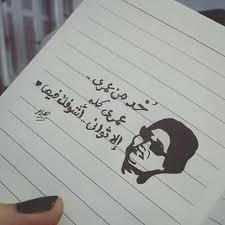 خد من عمرى..
عمرى كله
إلا ثوانى.. أشوفك فيها